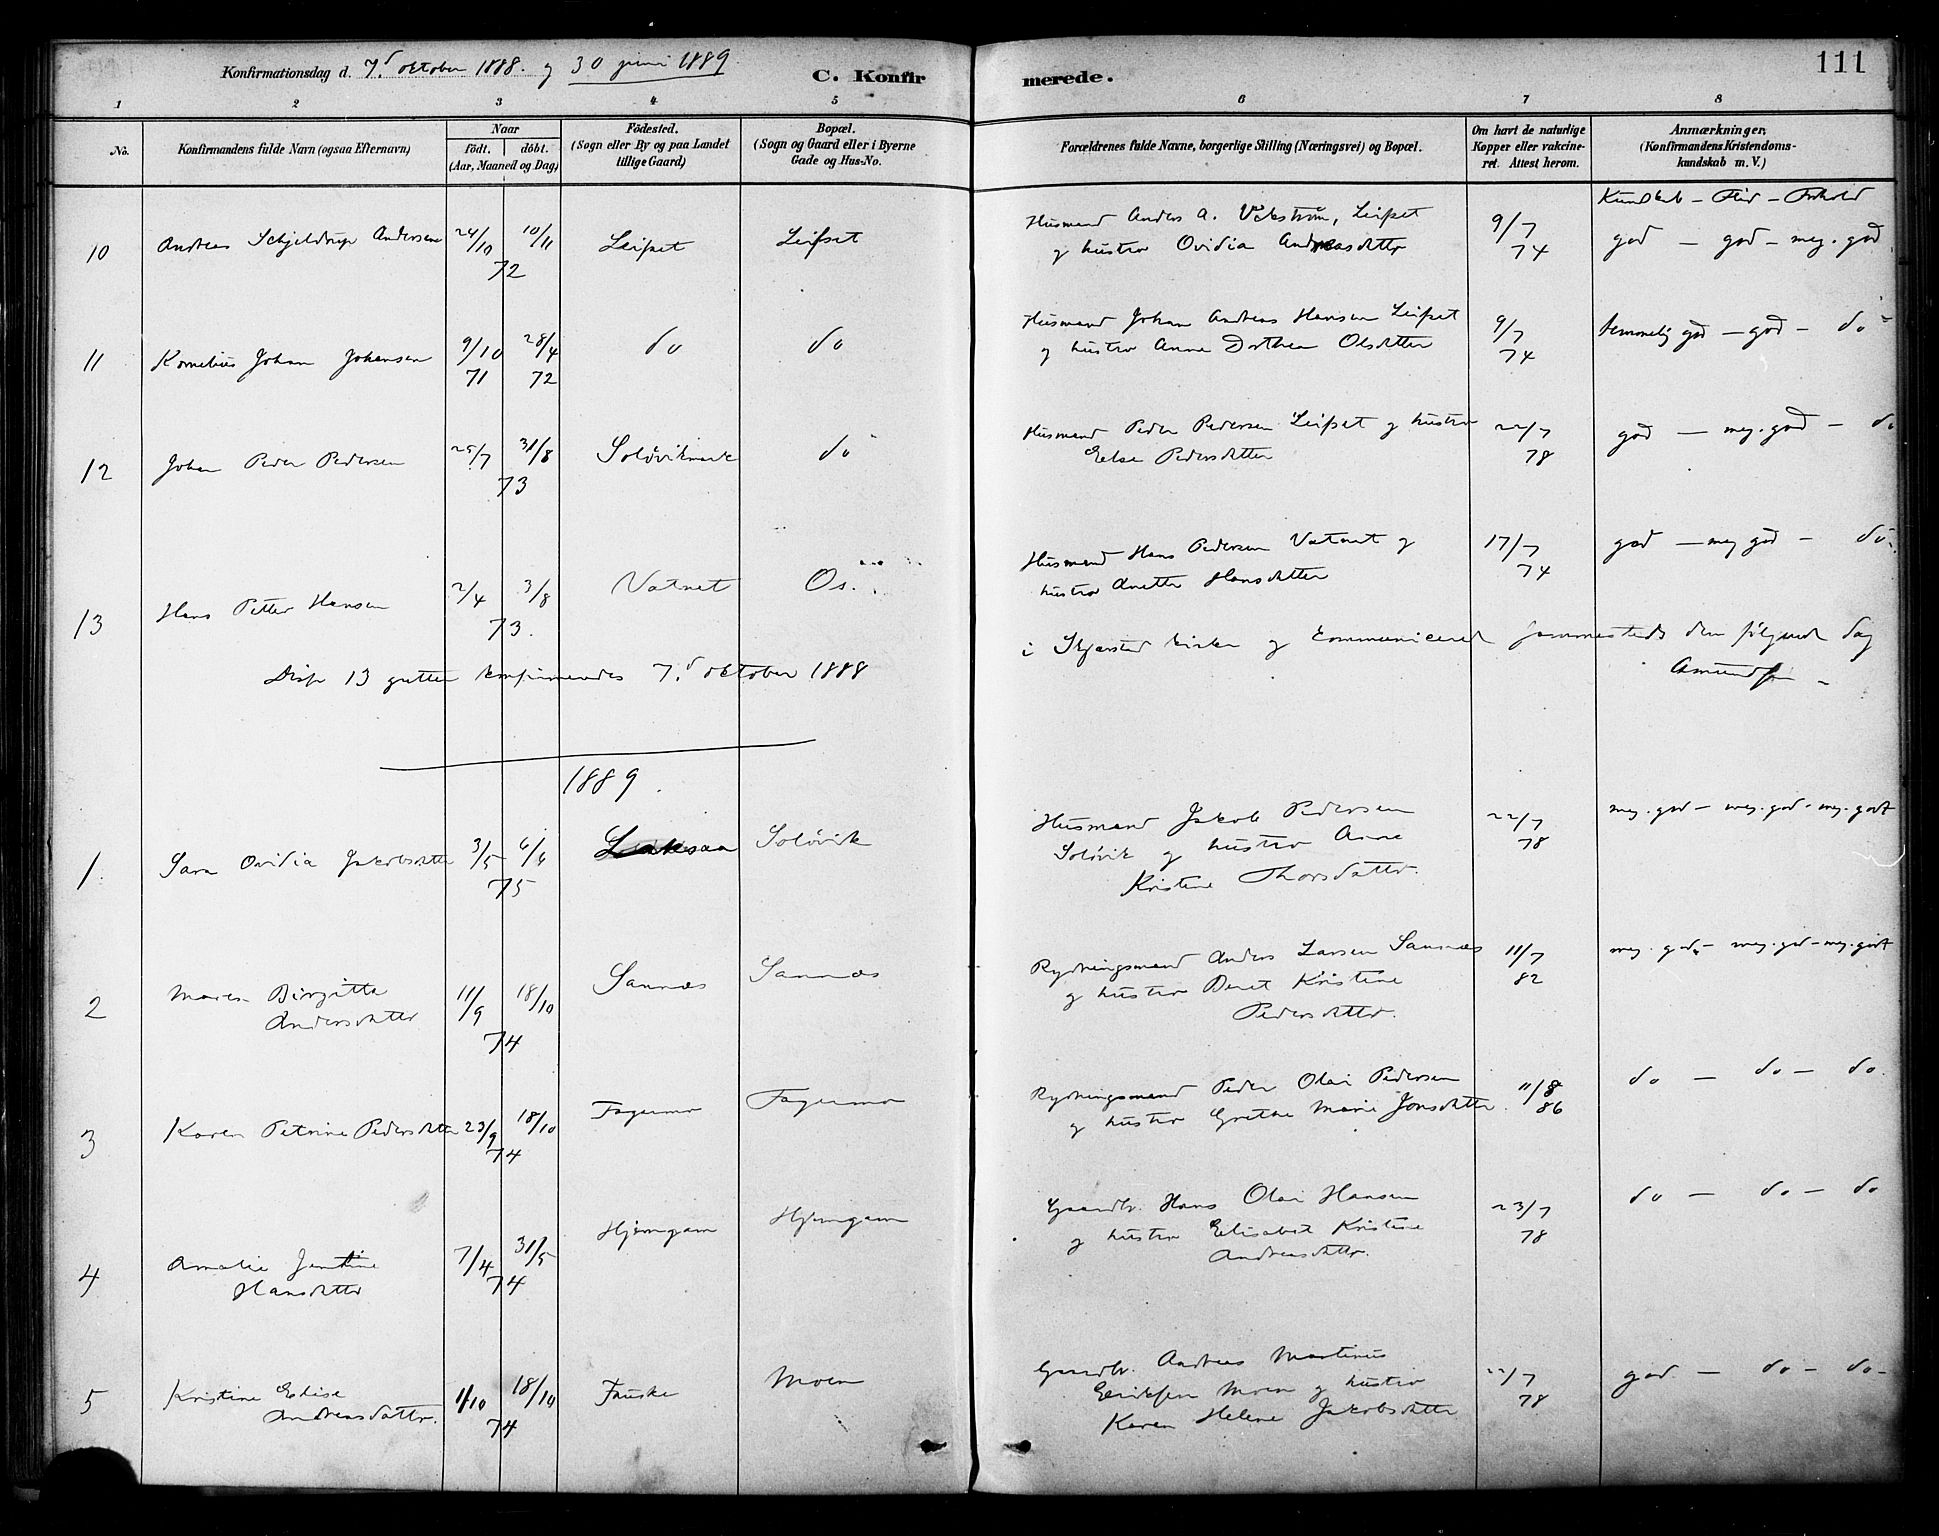 Konfirmationsdag d. 7.d oktober 1888. og 30 juni 1889
C. Konfirmerede.
111
1 2 3 4 5 6 7 8
No.
Konfirmandens fulde Navn (ogsaa Efternavn)
Naar
födt. döbt.
(Aar, Maaned og Dag)
Födested.
(Sogn eller By og paa Landet
tillige Gaard)
Bopæl.
(Sogn og Gaard eller i Byerne
Gade og Hus-No.
Forældrenes fulde Navne, borgerlige Stilling (Næringsvei) og Bopæl.
Om havt de naturlige
Kopper eller vakcine-
ret. Attest herom.
Anmærkninger,
(Konfirmandens Kristendoms-
kundskab m. V.)
Kundskab – Flid – Forhold
10 Andreas Schjeldrup Andersen 24/10 10/11 72 Leifset Leifset
Husmand Anders A. Vikström, Leifset
og hustru Ovidia Andreasdatter
9/7 74
god – god – meg. god
11 Kornelius Johan Johansen 9/10 71 28/4 72 do do
Husmand Johan Andreas Hansen Leifset
og hustru Anne Dorthea Olsdatter
9/7 74
temmelig god – god – do
12 Johan Peder Pedersen 25/7 31/8 73 Solövikmark do
Husmand Peder Pedersen Leifset og hustru
Else Pedersdatter
22/7 78
god – meg. god – do
13 Hans Petter Hansen 2/4 3/8 73. Vatnet Os.
Husmand Hans Pedersen Vatnet og
hustru Anette Hansdatter
17/7 74
god – meg god – do
Disse 13 gutter konfirmeredes 7.d oktober 1888 i Skjerstad kirke og kommunicerede sammesteds den følgende dag
Asmundsen
1889.
1. Sara Ovidia Jakobsdatter 3/5 6/6 75 Laksaa Solövik
Husmand Jakob Pedersen
Solövik og hustru Anne
Kristine Thorsdatter.
22/7 78
meg. god – meg. god – meg. godt
2 Maren Birgitta
Andersdatter 11/9 18/10 74 Sannæs Sannæs
Rydningsmand Anders Larsen Sannæs
og hustru Beret Kristine
Pedersdatter.
11/7 82
meg. god – meg. god – meg. godt
3 Karen Petrine Pedersdatter 23/9 18/10 74 Fagermo Fagermo
Rydningsmand Peder Olai Pedersen
og hustru Grethe Marie Jonsdatter.
11/8 86
do – do – do.
4 Amalie Jentine
Hansdatter 7/4 31/5 74 Hjemgam Hjemgam
Gaardbr. Hans Olai Hansen
og hustru Elisabet Kristine
Andreasdatter.
23/7 78
do – do – do
5 Kristine Elise
Andreasdatter. 1/10 18/10 74 Fauske Moen
Gaardbr. Andreas Martinus
Eriksen Moen og hustru
Karen Helene Jakobsdatter
22/7 78
god – do – do –